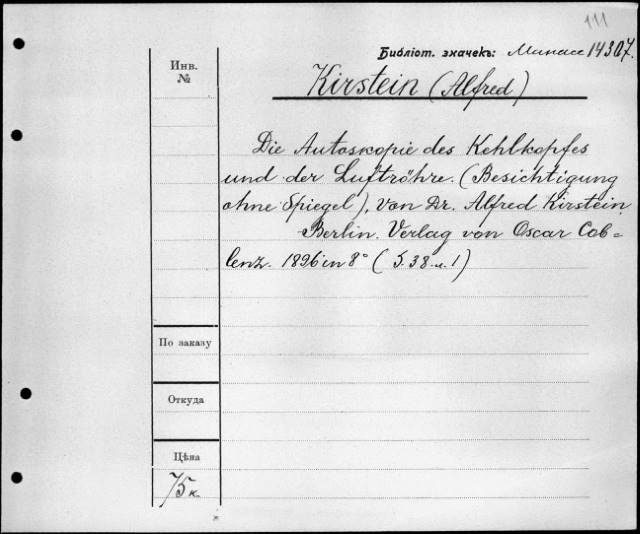 111
Библіот. значекъ: Минасс 14307.
Инв.
№
Kirstein (Alfred)
Die Autoskopie des Kehlkopfes
und der Luftröhre. (Besichtigung
ohne Spiegel), von Dr. Alfred Kirstein
Berlin. Verlag von Oscar Cob=
lenz. 1896 in 8° (S. 38 u. 1)
По заказу
Откуда
Цѣна
75 к.